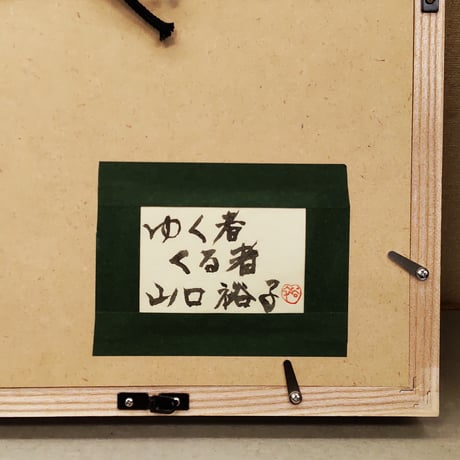 ゆく者
くる者
山口裕子